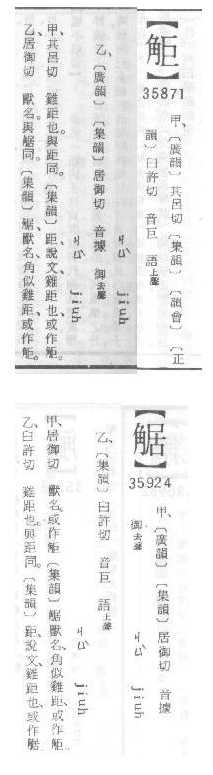 【⿰角巨】
35871
甲、〔廣韻〕其呂切〔集韻〕〔韻會〕〔正
韻〕臼許切 音巨 語上聲
ㄐㄩˋ jiuh
乙、〔廣韻〕〔集韻〕居御切 音據 御去聲
ㄐㄩˋ jiuh
甲、其呂切 雞距也。與距同。〔集韻〕距、說文、雞距也、或作⿰角巨。
乙、居御切 獸名。與⿰角居同。〔集韻〕⿰角居、獸名、角似雞距、或作⿰角巨。
【⿰角居】
35924
甲、〔廣韻〕〔集韻〕居御切 音據
御去聲 ㄐㄩˋ jiuh
乙、〔集韻〕臼許切 音巨 語上聲
ㄐㄩˋ jiuh
甲、居御切 獸名。或作⿰角巨。〔集韻〕⿰角居、獸名、角似雞距、或作⿰角巨。
乙、臼許切 雞距也。與距同。〔集韻〕距、說文、雞距也、或作⿰角居。